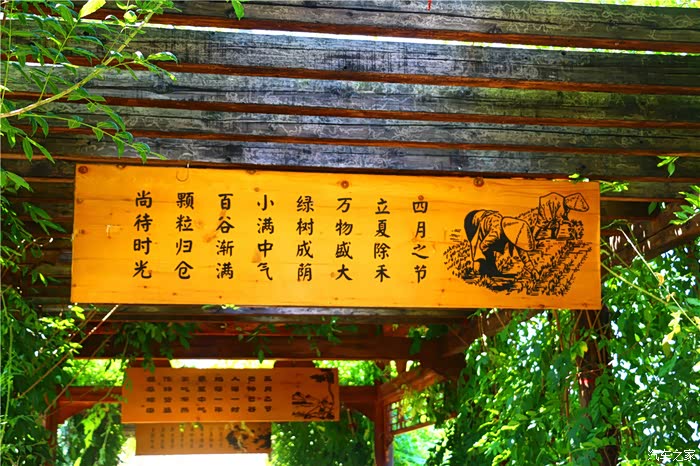 四月之节
立夏除禾
万物盛大
绿树成荫
小满中气
百谷渐满
颗粒归仓
尚待时光
汽车之家